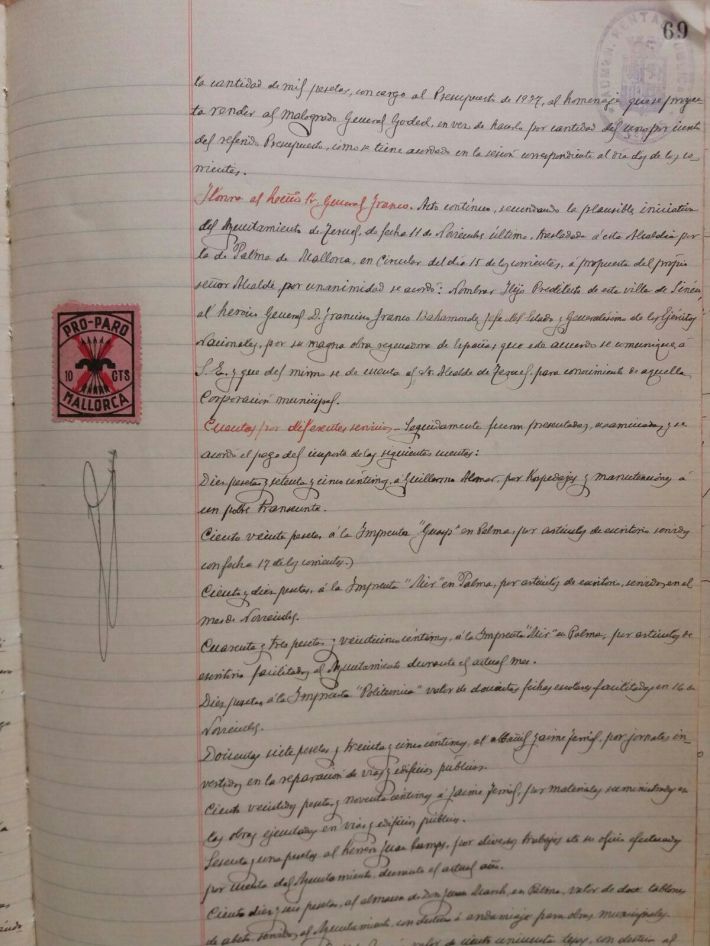 69
la cantidad de mil pesetas, con cargo al Presupuesto de 1937, al homenaje que se proyec-
ta rendir al malogrado General Goded, en vez de hacerlo por cantidad del uno por ciento
del referido Presupuesto, como se tiene acordado en la sesión correspondiente al día dos de los co-
rrientes.
Honra al heroico Gr. General Franco. Acto continuo, secundando la plausible iniciativa
del Ayuntamiento de Teruel, de fecha 11 de Noviembre último, trasladada a esta Alcaldía por
la de Palma de Mallorca, en Circular del día 15 de los corrientes, a propuesta del propio
señor Alcalde, por unanimidad se acordó: Nombrar Hijo Predilecto de esta villa de Sineu,
al heroico General D. Francisco Franco Bahamonde, Jefe del Estado y Generalísimo de los Ejércitos
Nacionales, por su magna obra regeneradora de España, que este acuerdo se comunique a
S.E. y que del mismo se de cuenta al Sr. Alcalde de Teruel, para conocimiento de aquella
Corporación municipal.
Cuentas por diferentes servicios. Seguidamente fueron presentadas, examinadas y se
acordó el pago del importe de las siguientes cuentas:
Diez pesetas y setenta y cinco céntimos, a Guillermo Alomar, por hospedajes y manutenciones á
un pobre transeunte.
Ciento veinte pesetas, á la Imprenta "Guasp" en Palma, por artículos de escritorio servidos
con fecha 17 de los corrientes.
Ciento y diez pesetas, á la Imprenta "Mir" en Palma, por artículos de escritorio, servidos en el
mes de Noviembre.
Cuarenta y tres pesetas y veinticinco céntimos, á la Imprenta "Mir" en Palma, por artículos de
escritorio facilitados al Ayuntamiento durante el actual mes.
Diez pesetas, á la Imprenta "Politécnica" valor de doscientas fichas escolares facilitadas en 16 de
Noviembre.
Doscientas siete pesetas y treinta y cinco céntimos, al albañil Jaime, por jornales in-
vertidos en la reparación de vías y edificios públicos.
Ciento veintidós pesetas y noventa céntimos á Jaime, por materiales suministrados en
las obras ejecutadas en vías y edificios públicos.
Sesenta y una pesetas, al herrero Juan Camps, por diversos trabajos de su oficio efectuados
por cuenta del Ayuntamiento, durante el actual año.
Ciento diez y seis pesetas, al almacen de Don Juan March, en Palma, valor de doce tablones
de abeto, servidos al Ayuntamiento, con destino á andamiaje para obras municipales.
valor de ciento cincuenta con destino al
PRO-PARO
10 CTS
MALLORCA